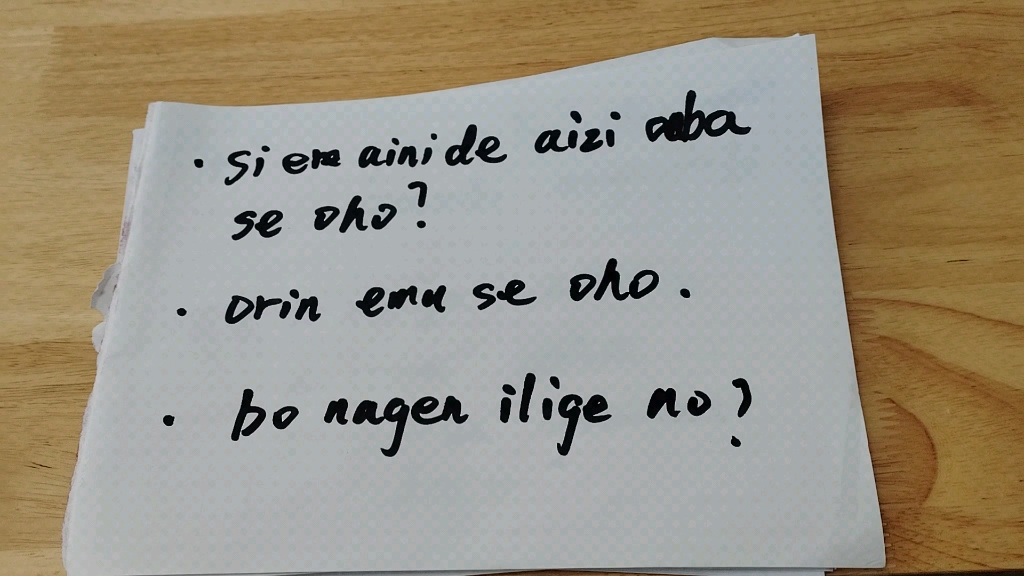 · si ere aini de aizi ba
se oho?
· orin emu se oho.
· bo nagen ilige no?